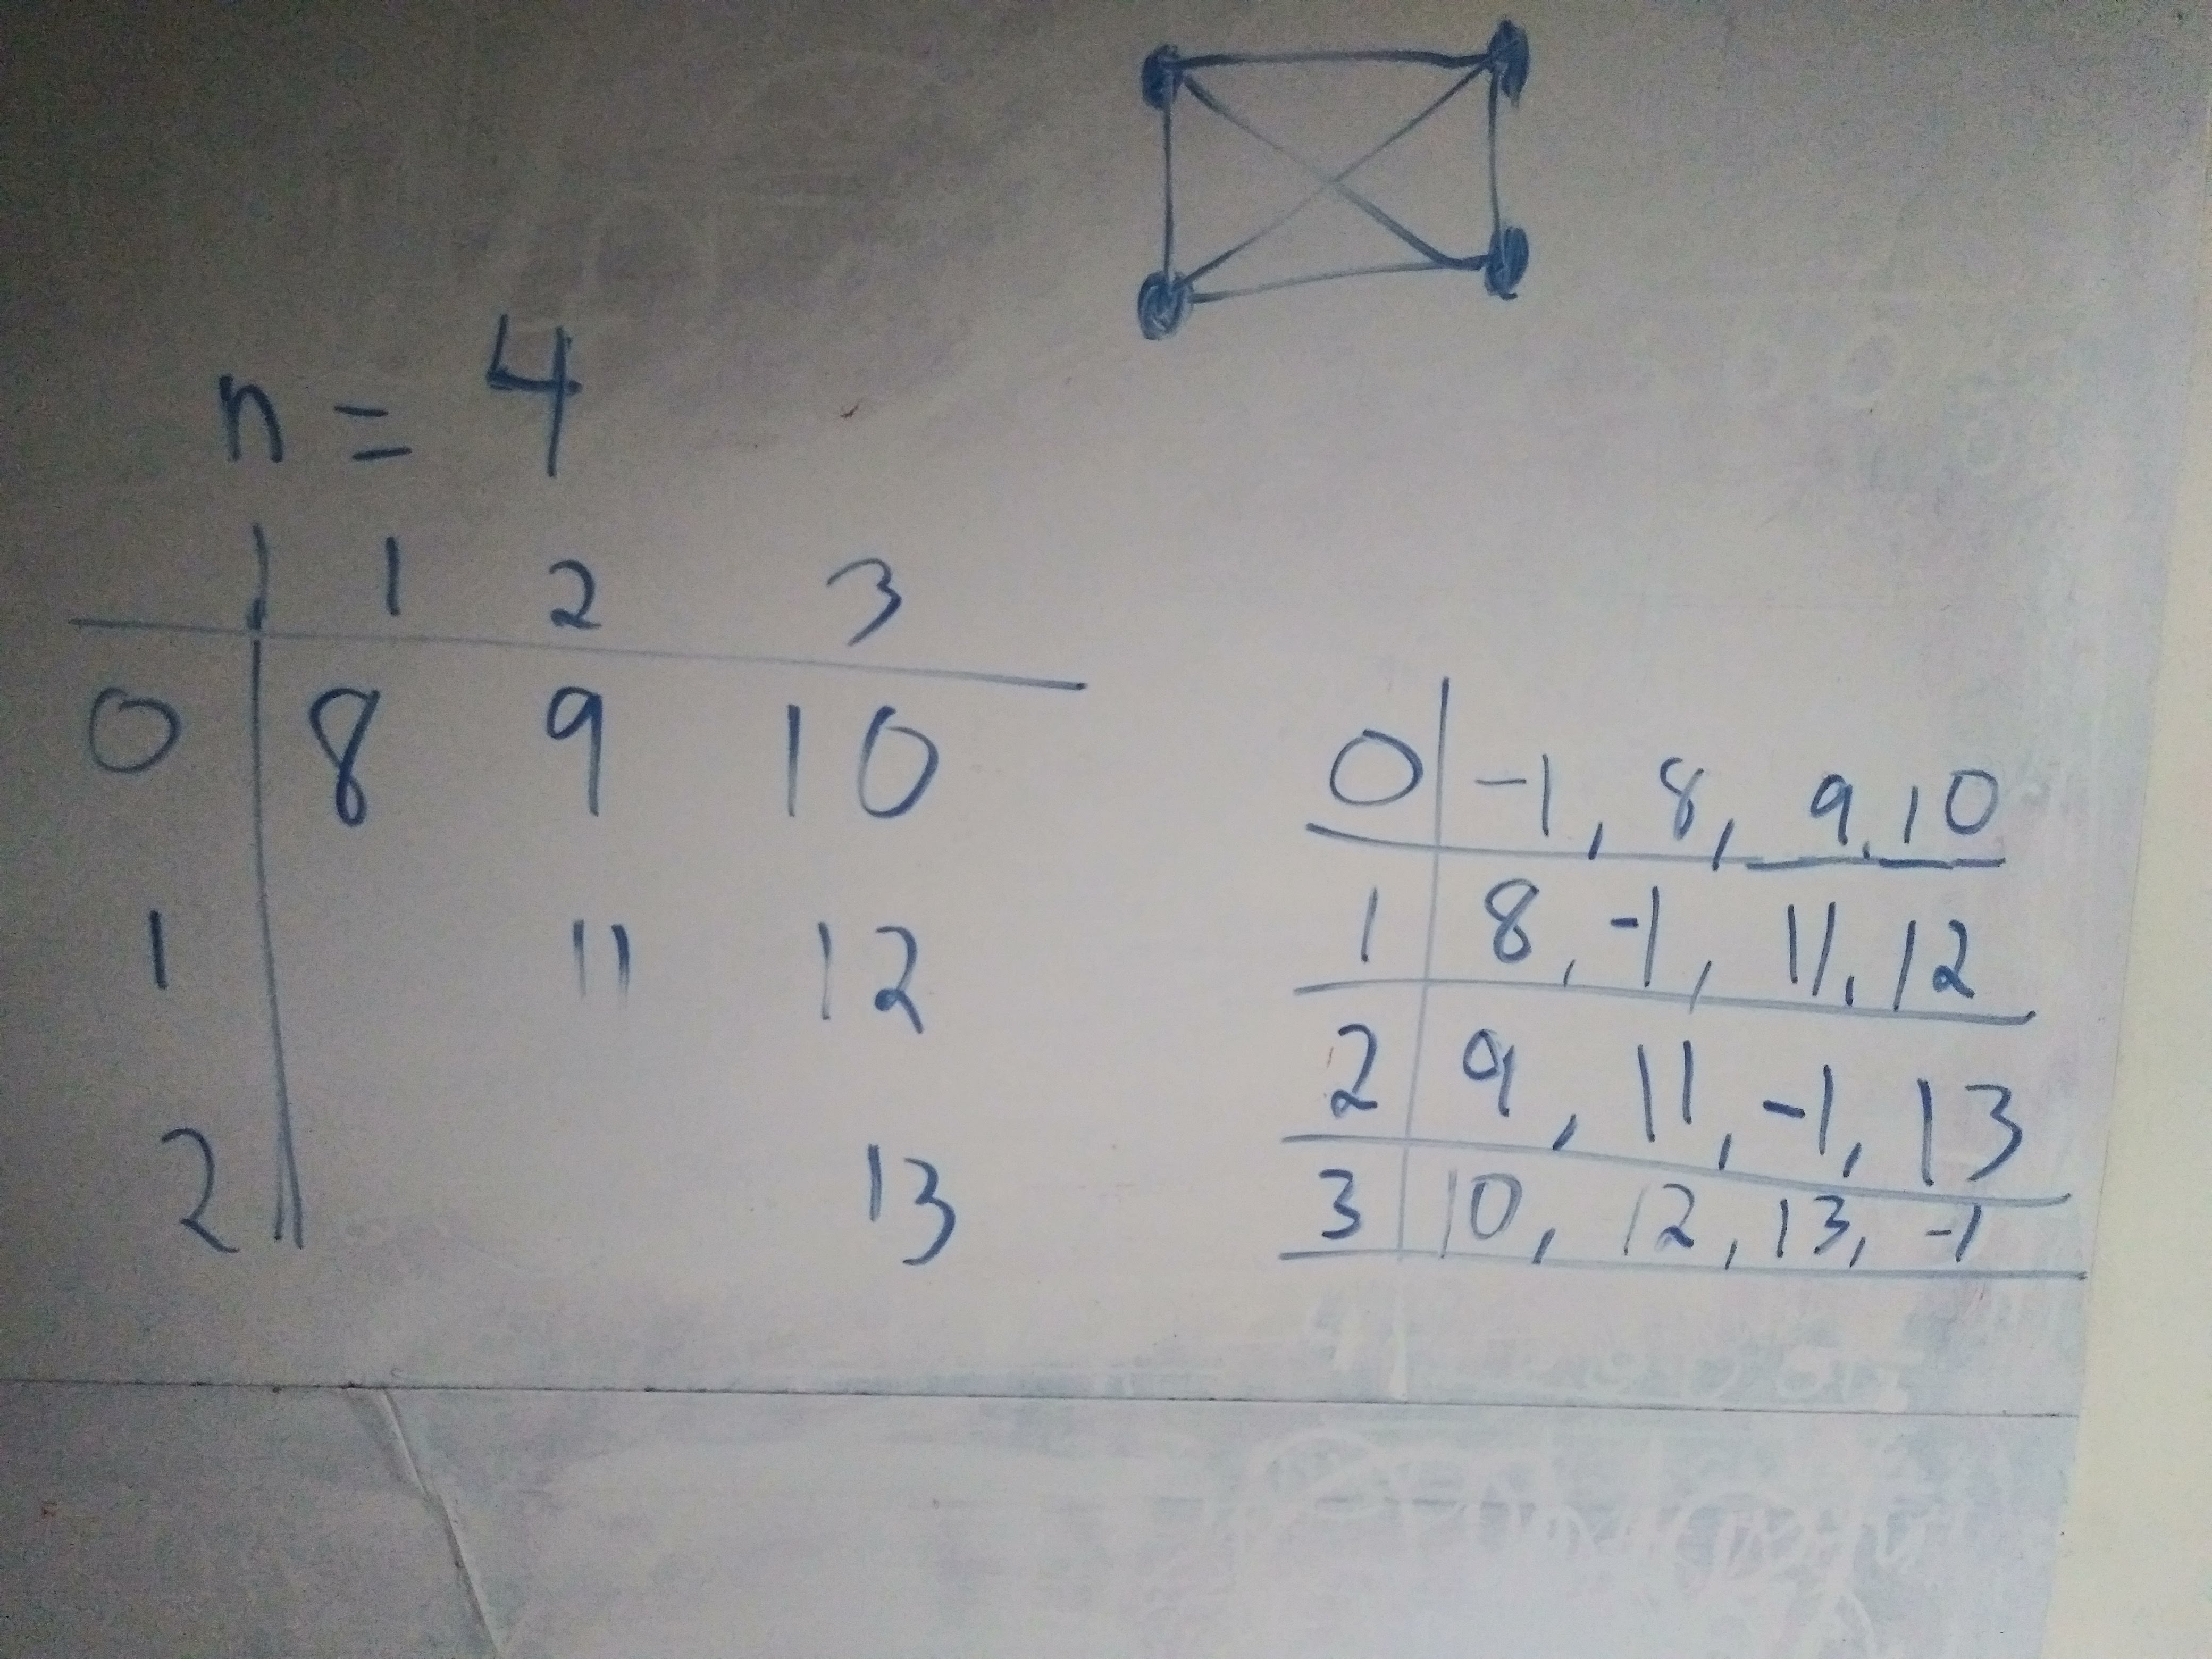 n = 4
1 2 3
0 8 9 10
1 11 12
2 13
0 -1, 8, 9, 10
1 8, -1, 11, 12
2 9, 11, -1, 13
3 10, 12, 13, -1